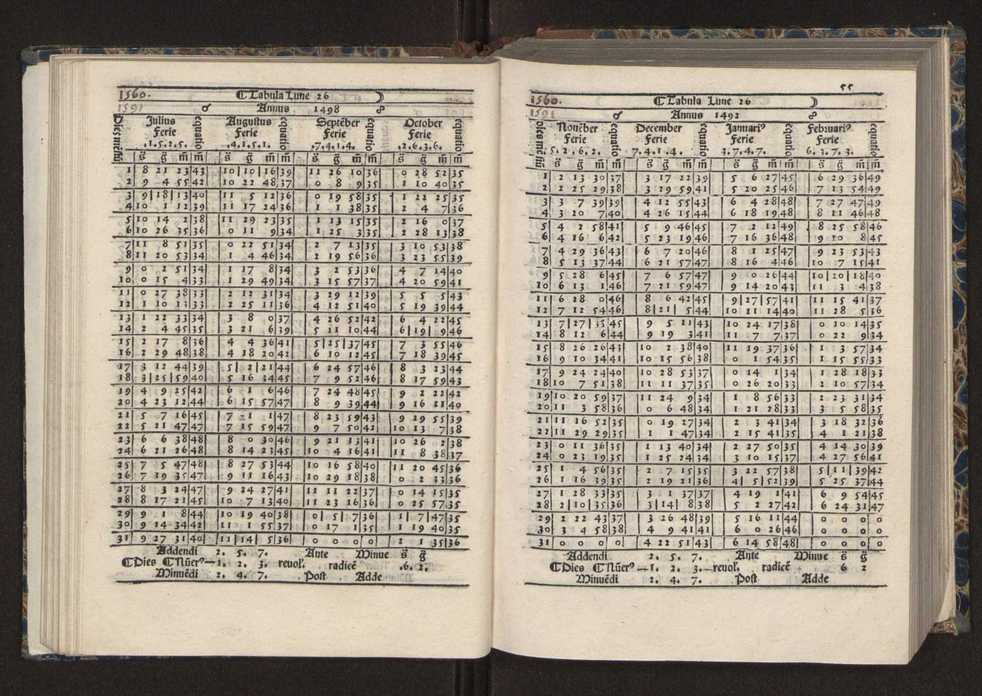 1560.
☾ Tabula Lune 26
1591
♂ Annus 1498 ☍
Dies mēsis Julius equatio Augustus equatio Septēber equatio October equatio
Ferie Ferie Ferie Ferie
.1.5.2.5. .4.1.5.1. .7.4.1.4. .2.6.3.6.
s̄ ḡ m̄ m̄ s̄ ḡ m̄ m̄ s̄ ḡ m̄ m̄ s̄ ḡ m̄ m̄
1 8 21 23 43 10 10 16 39 11 26 10 36 0 28 52 35
2 9 4 55 42 10 22 48 37 0 8 9 35 1 10 40 35
3 9 18 13 40 11 5 12 36 0 19 58 35 1 22 25 35
4 10 1 12 39 11 17 24 36 1 1 38 35 2 4 7 36
5 10 14 2 38 11 29 23 35 1 13 15 35 2 16 0 37
6 10 26 35 36 0 11 9 34 1 25 3 35 2 28 13 38
7 11 8 51 35 0 22 51 34 2 7 13 35 3 10 53 38
8 11 20 53 34 1 4 46 34 2 19 56 36 3 23 55 39
9 0 2 51 34 1 17 8 34 3 2 53 36 4 7 14 40
10 0 15 4 33 1 29 49 34 3 15 57 37 4 20 59 41
11 0 27 38 33 2 12 31 34 3 29 12 39 5 5 5 43
12 1 10 33 33 2 25 11 36 4 12 51 40 5 19 39 44
13 1 22 33 34 3 8 0 37 4 26 52 42 6 4 22 45
14 2 4 45 35 3 21 6 39 5 11 10 44 6 19 9 46
15 2 17 8 36 4 4 36 41 5 25 37 45 7 3 55 46
16 2 29 48 38 4 18 20 42 6 10 12 45 7 18 39 45
17 3 12 44 39 5 2 21 44 6 24 57 46 8 3 23 44
18 3 25 59 40 5 16 34 45 7 9 52 46 8 17 59 43
19 4 9 25 42 6 1 6 46 7 24 48 45 9 2 22 42
20 4 23 11 44 6 15 57 47 8 9 39 44 9 16 21 40
21 5 7 16 45 7 21 1 47 8 23 59 43 9 19 55 39
22 5 21 47 47 7 15 59 47 9 7 50 42 10 13 7 38
23 6 6 38 48 8 0 30 46 9 21 13 41 10 26 2 38
24 6 21 26 48 8 14 23 45 10 4 16 41 11 8 38 37
25 7 5 47 48 8 27 53 44 10 16 58 40 11 20 45 36
26 7 19 35 47 9 11 16 43 10 29 18 38 0 2 33 36
27 8 3 24 47 9 24 27 41 11 11 22 37 0 14 15 35
28 8 17 21 45 10 7 13 40 11 23 16 36 0 25 57 35
29 9 1 8 44 10 19 40 38 0 5 7 36 1 7 47 35
30 9 14 34 42 11 1 55 37 0 17 1 35 1 19 40 35
31 9 27 31 40 11 14 5 36 0 0 0 0 2 1 35 36
Addendi 2. 5. 7. Ante Minue s̄ ḡ
☾Dies ☾Nūer⁹—1. 2. 3. reuol. radicē .6. 2.
Minuēdi 2. 4. 7. Post Adde
55
1560.
☾ Tabula Lune 26
1591
♂ Annus 1492 ☍
Dies mēsis Nouēber equatio December equatio Januari⁹ equatio Februari⁹ equatio
Ferie Ferie Ferie Ferie
5.2.6.2. 7.4.1.4. 3.7.4.7. 6.3.7.3.
s̄ ḡ m̄ m̄ s̄ ḡ m̄ m̄ s̄ ḡ m̄ m̄ s̄ ḡ m̄ m̄
1 2 13 30 37 3 17 22 39 5 6 27 45 6 29 36 49
2 2 25 29 38 3 29 59 41 5 20 25 46 7 13 54 49
3 3 7 39 39 4 12 55 43 6 4 28 48 7 27 47 49
4 3 20 7 40 4 26 15 44 6 18 19 48 8 11 46 48
5 4 2 58 41 5 9 46 45 7 2 12 49 8 25 58 46
6 4 16 6 42 5 23 19 46 7 16 36 48 9 10 8 45
7 4 29 36 43 6 7 20 46 8 1 25 47 9 23 53 43
8 5 13 37 44 6 21 57 47 8 16 4 46 10 7 15 41
9 5 28 6 45 7 6 57 47 9 0 26 44 10 20 18 40
10 6 13 1 46 7 21 59 47 9 14 20 43 11 3 4 38
11 6 28 0 46 8 6 42 45 9 27 57 41 11 15 41 37
12 7 12 54 46 8 21 5 44 10 11 14 40 11 28 5 36
13 7 27 15 45 9 5 11 43 10 24 17 38 0 10 14 35
14 8 12 6 44 9 19 3 41 11 7 7 37 0 22 9 34
15 8 26 26 43 10 2 38 40 11 19 37 36 1 3 57 34
16 9 10 34 41 10 15 56 38 0 1 54 35 1 15 55 33
17 9 24 24 40 10 28 53 37 0 14 1 34 1 28 18 33
18 10 7 51 38 11 11 37 35 0 26 20 33 2 10 57 34
19 10 20 59 37 11 24 9 34 1 8 56 33 2 23 31 34
20 11 3 58 36 0 6 48 34 1 21 28 33 3 5 58 35
21 11 16 52 35 0 19 27 34 2 3 41 34 3 18 32 36
22 11 29 29 35 1 1 47 34 2 15 41 35 4 1 21 38
23 0 11 36 35 1 13 40 34 2 27 50 35 4 14 30 39
24 0 23 19 35 1 25 24 34 3 10 15 37 4 27 56 41
25 1 4 56 35 2 7 15 35 3 22 57 38 5 11 39 42
26 1 16 39 35 2 19 21 36 4 5 52 39 5 25 37 44
27 1 28 33 35 3 1 37 37 4 19 1 41 6 9 54 45
28 2 10 35 36 3 14 8 38 5 2 27 42 6 24 31 47
29 2 22 43 37 3 26 48 39 5 16 11 44 0 0 0 0
30 3 4 58 38 4 9 41 41 6 0 26 46 0 0 0 0
31 0 0 0 0 4 22 51 43 6 14 58 48 0 0 0 0
Addendi 2. 5. 7. Ante Minue s̄ ḡ
☾Dies ☾Nūer⁹—1. 2. 3.—reuol. radicē 6 2
Minuēdi 2. 4. 7. Post Adde